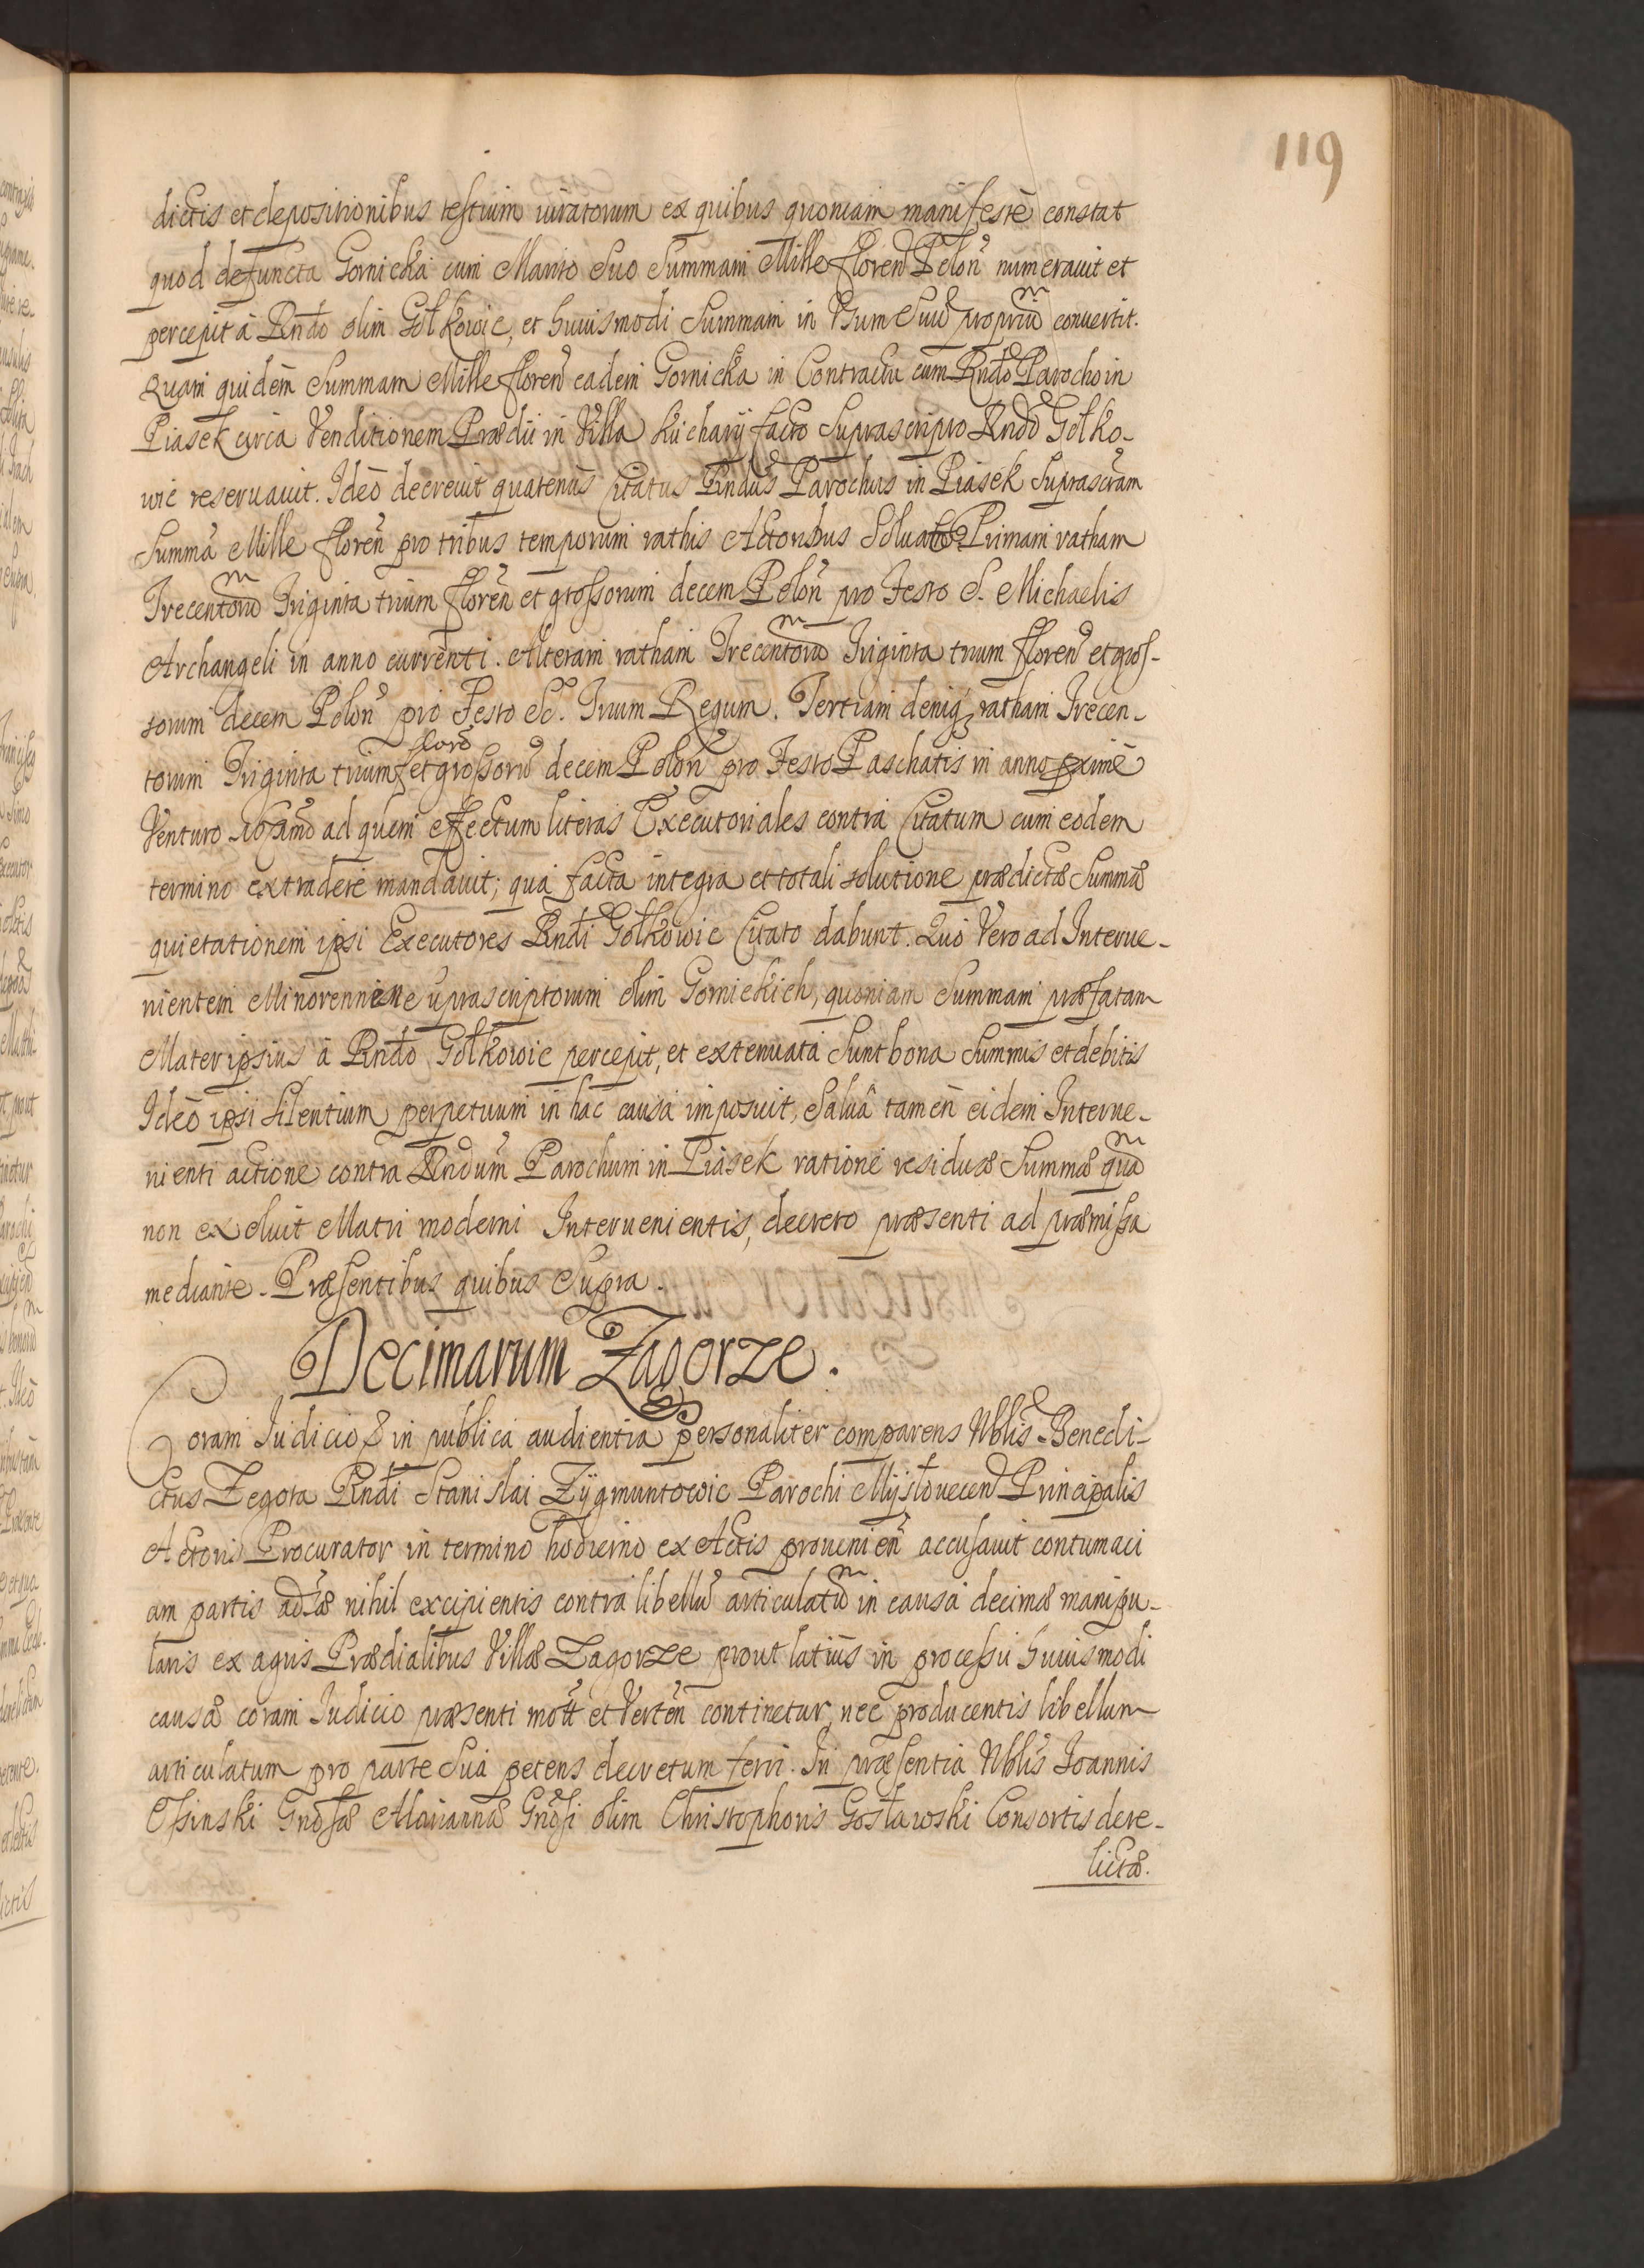 119
dictis et depositionibus testium iuratorum ex quibus quoniam manifestè constat
quod defuncta Gornicka cum Marito Suo Summam Mille floren Polon numerauit et
percepit à Rndo olim Gołkowic, et huiusmodi Summam in Vsum Suũ propriũ conuertit.
Quam quidem Summam Mille floren eadem Gornicka in Contractu cum Rndo Parocho in
Piasek circa Venditionem Prædii in Villa Kuchary facto Suprascripto Rndo Gołko-
wic reseruauit. Ideò decreuit quatenus Citatus Rndus Parochus in Piasek Suprascram
Summã Mille floren pro tribus temporum rathis Actoribus Soluat Primam ratham
Trecentorũ Triginta trium floren et grossorum decem Polon pro Festo S. Michaelis
Archangeli in anno currenti. Alteram ratham Trecentorũ Triginta trium floren et gros-
sorum decem Polon pro Festo SS. Trium Regum. Tertiam deniq ratham Trecen-
torum Triginta trium floren et grossorũ decem Polon pro Festo Paschatis in anno pximè
Venturo ad quem effectum literas Executoriales contra Citatum cum eodem
termino extradere mandauit; qua facta integra et totali solutione prædictæ Summæ
quietationem ipsi Executores Rndi Gołkowic Citato dabunt. Quo Vero ad Interue-
nientem Minorennem Suprascriptorum olim Gornickich, quoniam Summam præfatam
Mater ipsius à Rndo Gołkowic percepit, et extenuata Sunt bona Summis et debitis
Ideò ipsi Silentium perpetuum in hac causa imposuit, Saluâ tamen eidem Interue-
nienti actione contra Rndum Parochum in Piasek ratione residuæ Summæ quã
non exoluit Matri moderni Interuenientis, decreto præsenti ad præmissa
mediante. Præsentibus quibus Supra.
Decimarum Zagorze.
Coram Iudicio & in publica audientia personaliter comparens Nblis Benedi-
ctus Zegota Rndi Stanislai Zygmuntowic Parochi Mysłouecen Principalis
Actoris Procurator in termino hodierno ex Actis prouenien accusauit contumaci
am partis adsæ nihil excipientis contra libellũ articulatũ in causa decimæ manipu-
laris ex agris Prædialibus Villæ Zagorze prout latius in processu huiusmodi
causæ coram Iudicio præsenti mott et Verten continetur, nec producentis libellum
articulatum pro parte Sua petens decretum ferri. In præsentia Nblis Ioannis
Ossinski Gnosæ Mariannæ Gnosi olim Christophoris Gosławski Consortis dere-
lictæ.